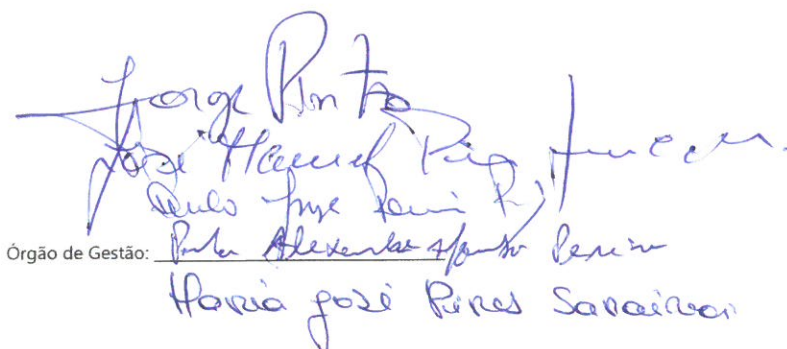 Jorge Pinto
José Manuel
Paulo Jorge
Órgão de Gestão: Paula Alexandra Afonso Pereira
Maria José Pires Saraiva